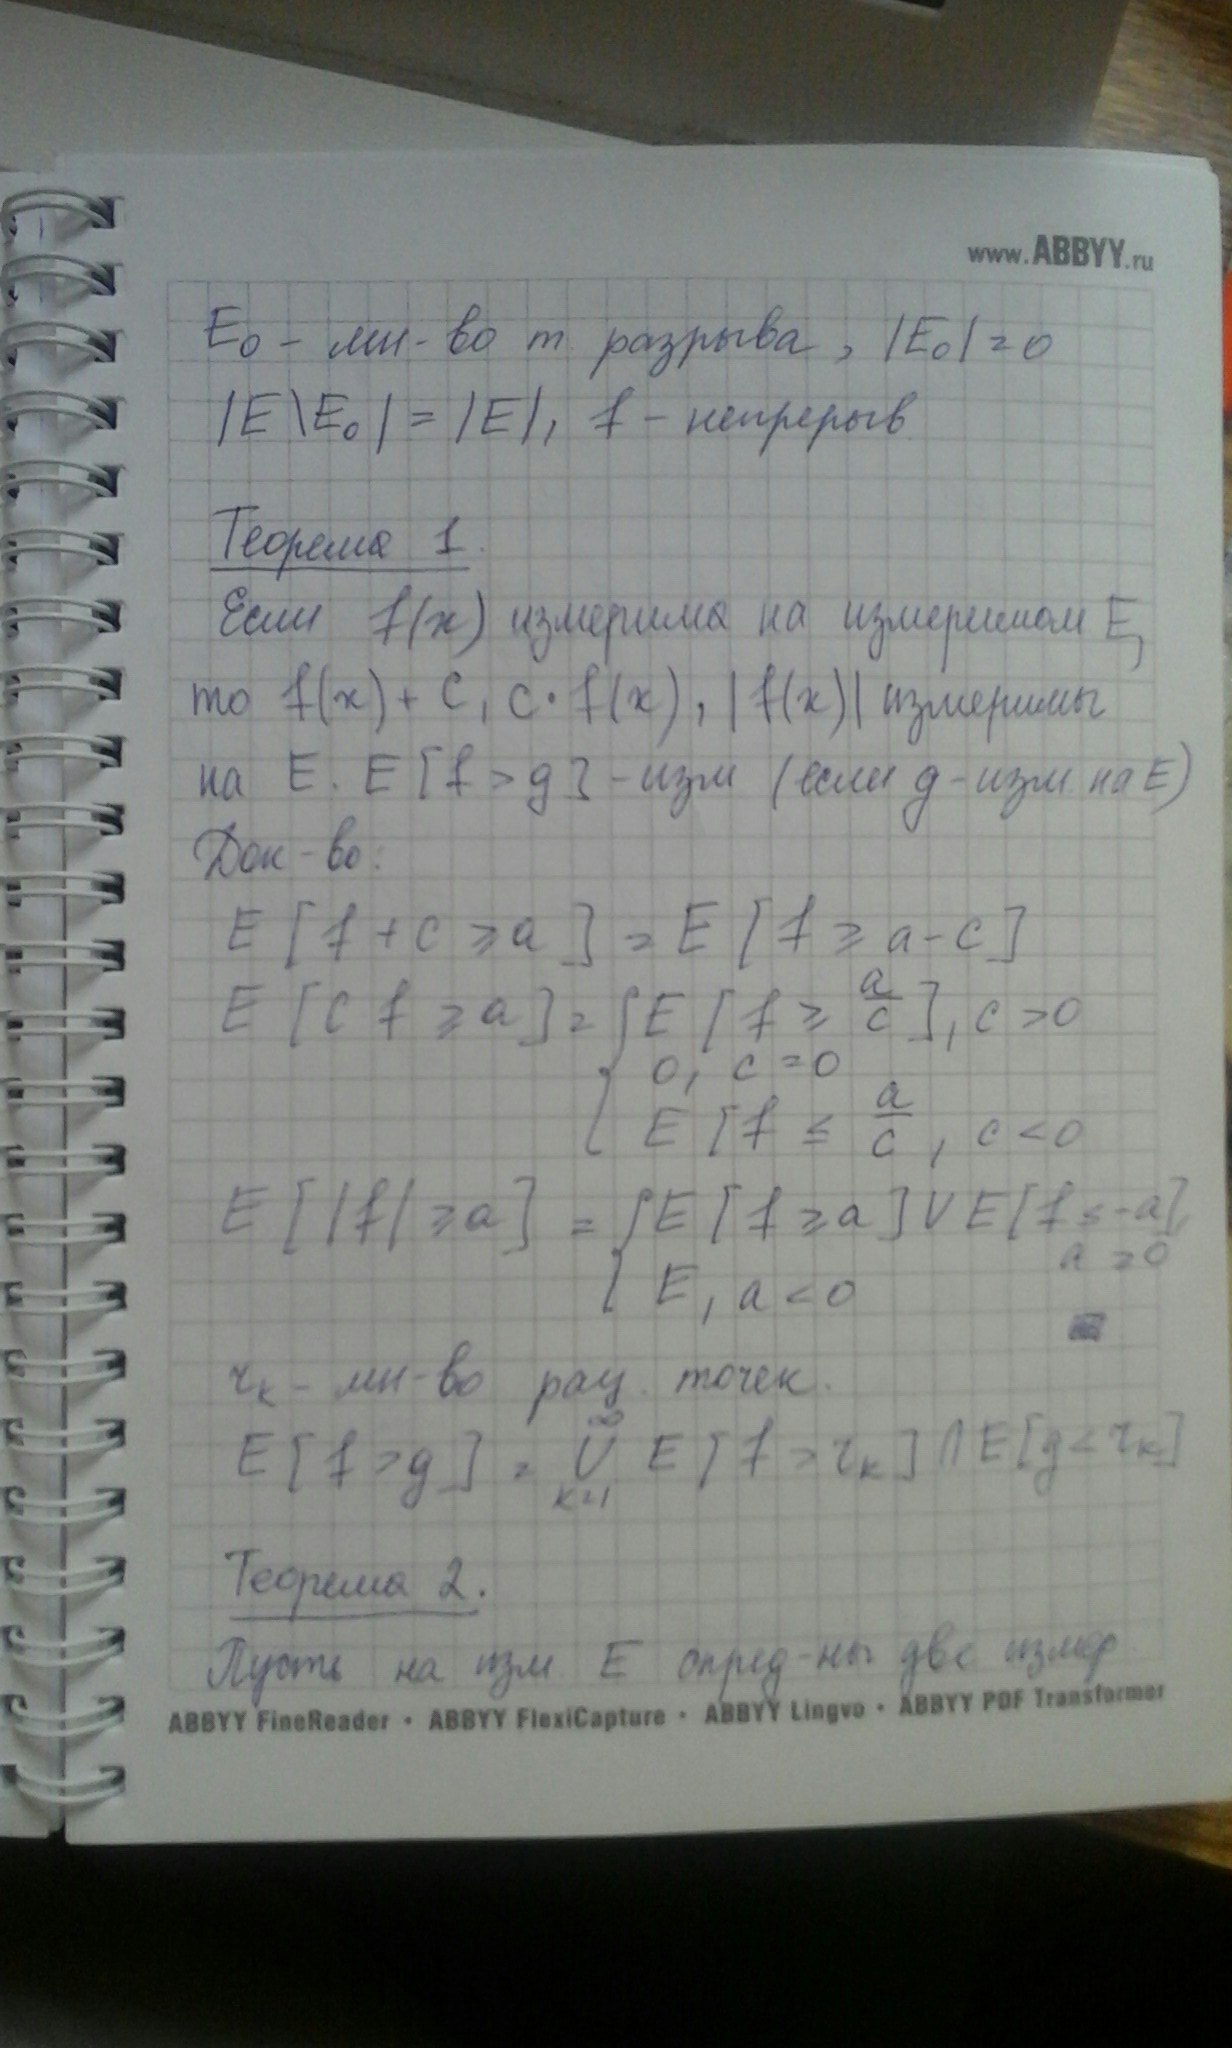 www.ABBYY.ru
E₀ - мн-во т. разрыва, |E₀| = 0
|E \ E₀| = |E|, f - непрерыв
Теорема 1.
Если f(x) измерима на измеримом E,
то f(x) + C, c · f(x), |f(x)| измеримы
на E. E [f > g] - изм (если g - изм. на E)
Док-во:
E [f + c ⩾ a] = E [f ⩾ a - c]
E [c f ⩾ a] = { E [f ⩾ a/c], c > 0
0, c = 0
E [f ≤ a/c, c < 0
E [|f| ⩾ a] = { E [f ⩾ a] ∪ E [f ≤ -a],
a ⩾ 0
E, a < 0
rₖ - мн-во рац. точек.
E [f > g] = ∞ ∪ k=1 E [f > rₖ] ∩ E [g < rₖ]
Теорема 2.
Пусть на изм E опред-ны две измер.
ABBYY FineReader • ABBYY FlexiCapture • ABBYY Lingvo • ABBYY PDF Transformer